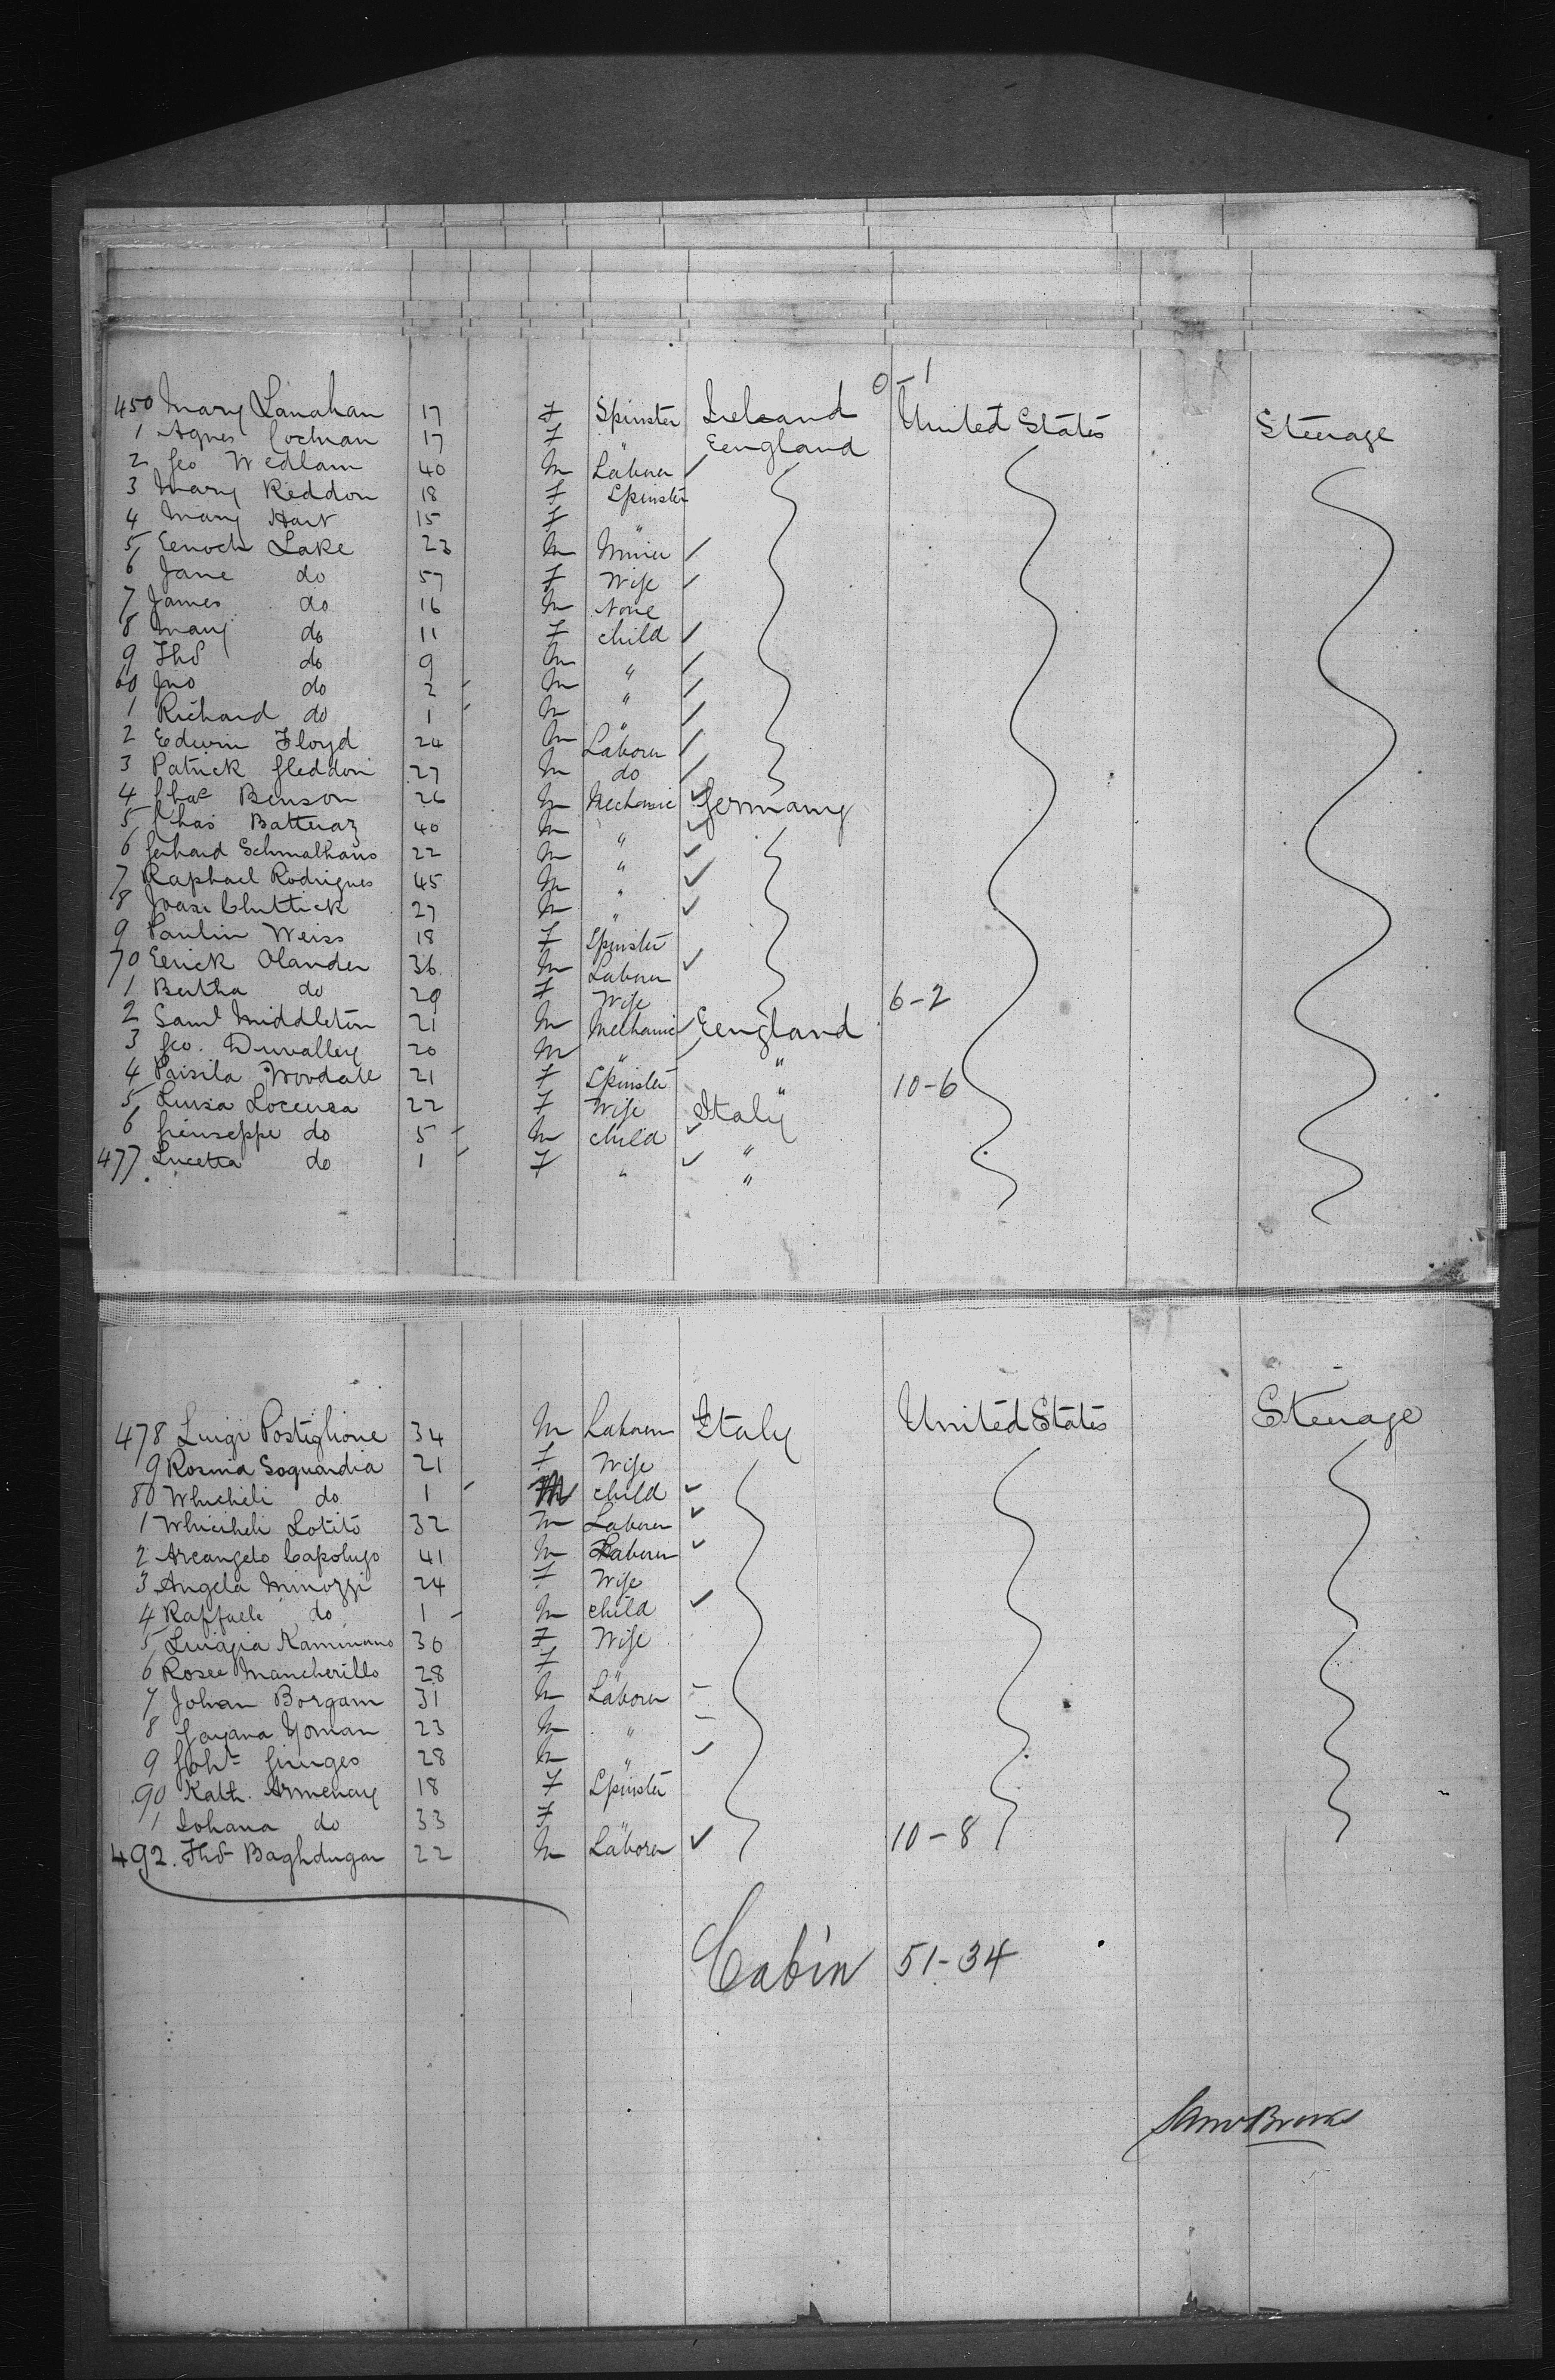 0-1
450 Mary Lanahan 17 F Spinster Ireland United States Steerage
1 Agnes Cochran 17 F " England
2 Geo Wedlam 40 M Laborer
3 Mary Reddon 18 F Spinster
4 Mary Hart 15 F "
5 Eenoch Lake 23 M Miner
6 Jane do 57 F Wife
7 James do 16 M None
8 Mary do 11 F child
9 Thos do 9 M "
60 Jno do 2 M "
1 Richard do 1 M "
2 Edwin Floyd 24 M Laborer
3 Patrick Gleddon 27 M do
4 Chas Benson 26 M Mechanic Germany
5 Chas Batteraz 40 M "
6 Gerhard Schmalhaus 22 M "
7 Raphael Rodrigues 45 M "
8 Chuttick 27 M "
9 Paulin Weiss 18 F Spinster
70 Eerick Olander 36 M Laborer
1 Bertha do 29 F Wife 6-2
2 Saml Middleton 21 M Mechanic Eengland
3 Geo. Duvalley 20 M " "
4 Prisila Woodall 21 F Spinster " 10-6
5 Luisa Locensa 22 F Wife Italy
6 Giuseppe do 5 M child "
477 Lucetta do 1 F " "
478 Luigi Postiglione 34 M Laborer Italy United States Steerage
9 Rosina Soguardia 21 F Wife
80 Whicheli do 1 M child
1 Whicheli Lotito 32 M Laborer
2 Arcangelo Capolugo 41 M Laborer
3 Angela Minozzi 24 F Wife
4 Raffaele do 1 M child
5 Kaminano 30 F Wife
6 Rosee Mancherillo 28 F "
7 Johan Borgam 31 M Laborer
8 Gayana Yoman 23 M "
9 Giuges 28 M "
90 Kath. Armenay 18 F Spinster
1 Iohana do 33 F "
492. Thos Baghdugan 22 M Laborer 10-8
Cabin 51-34